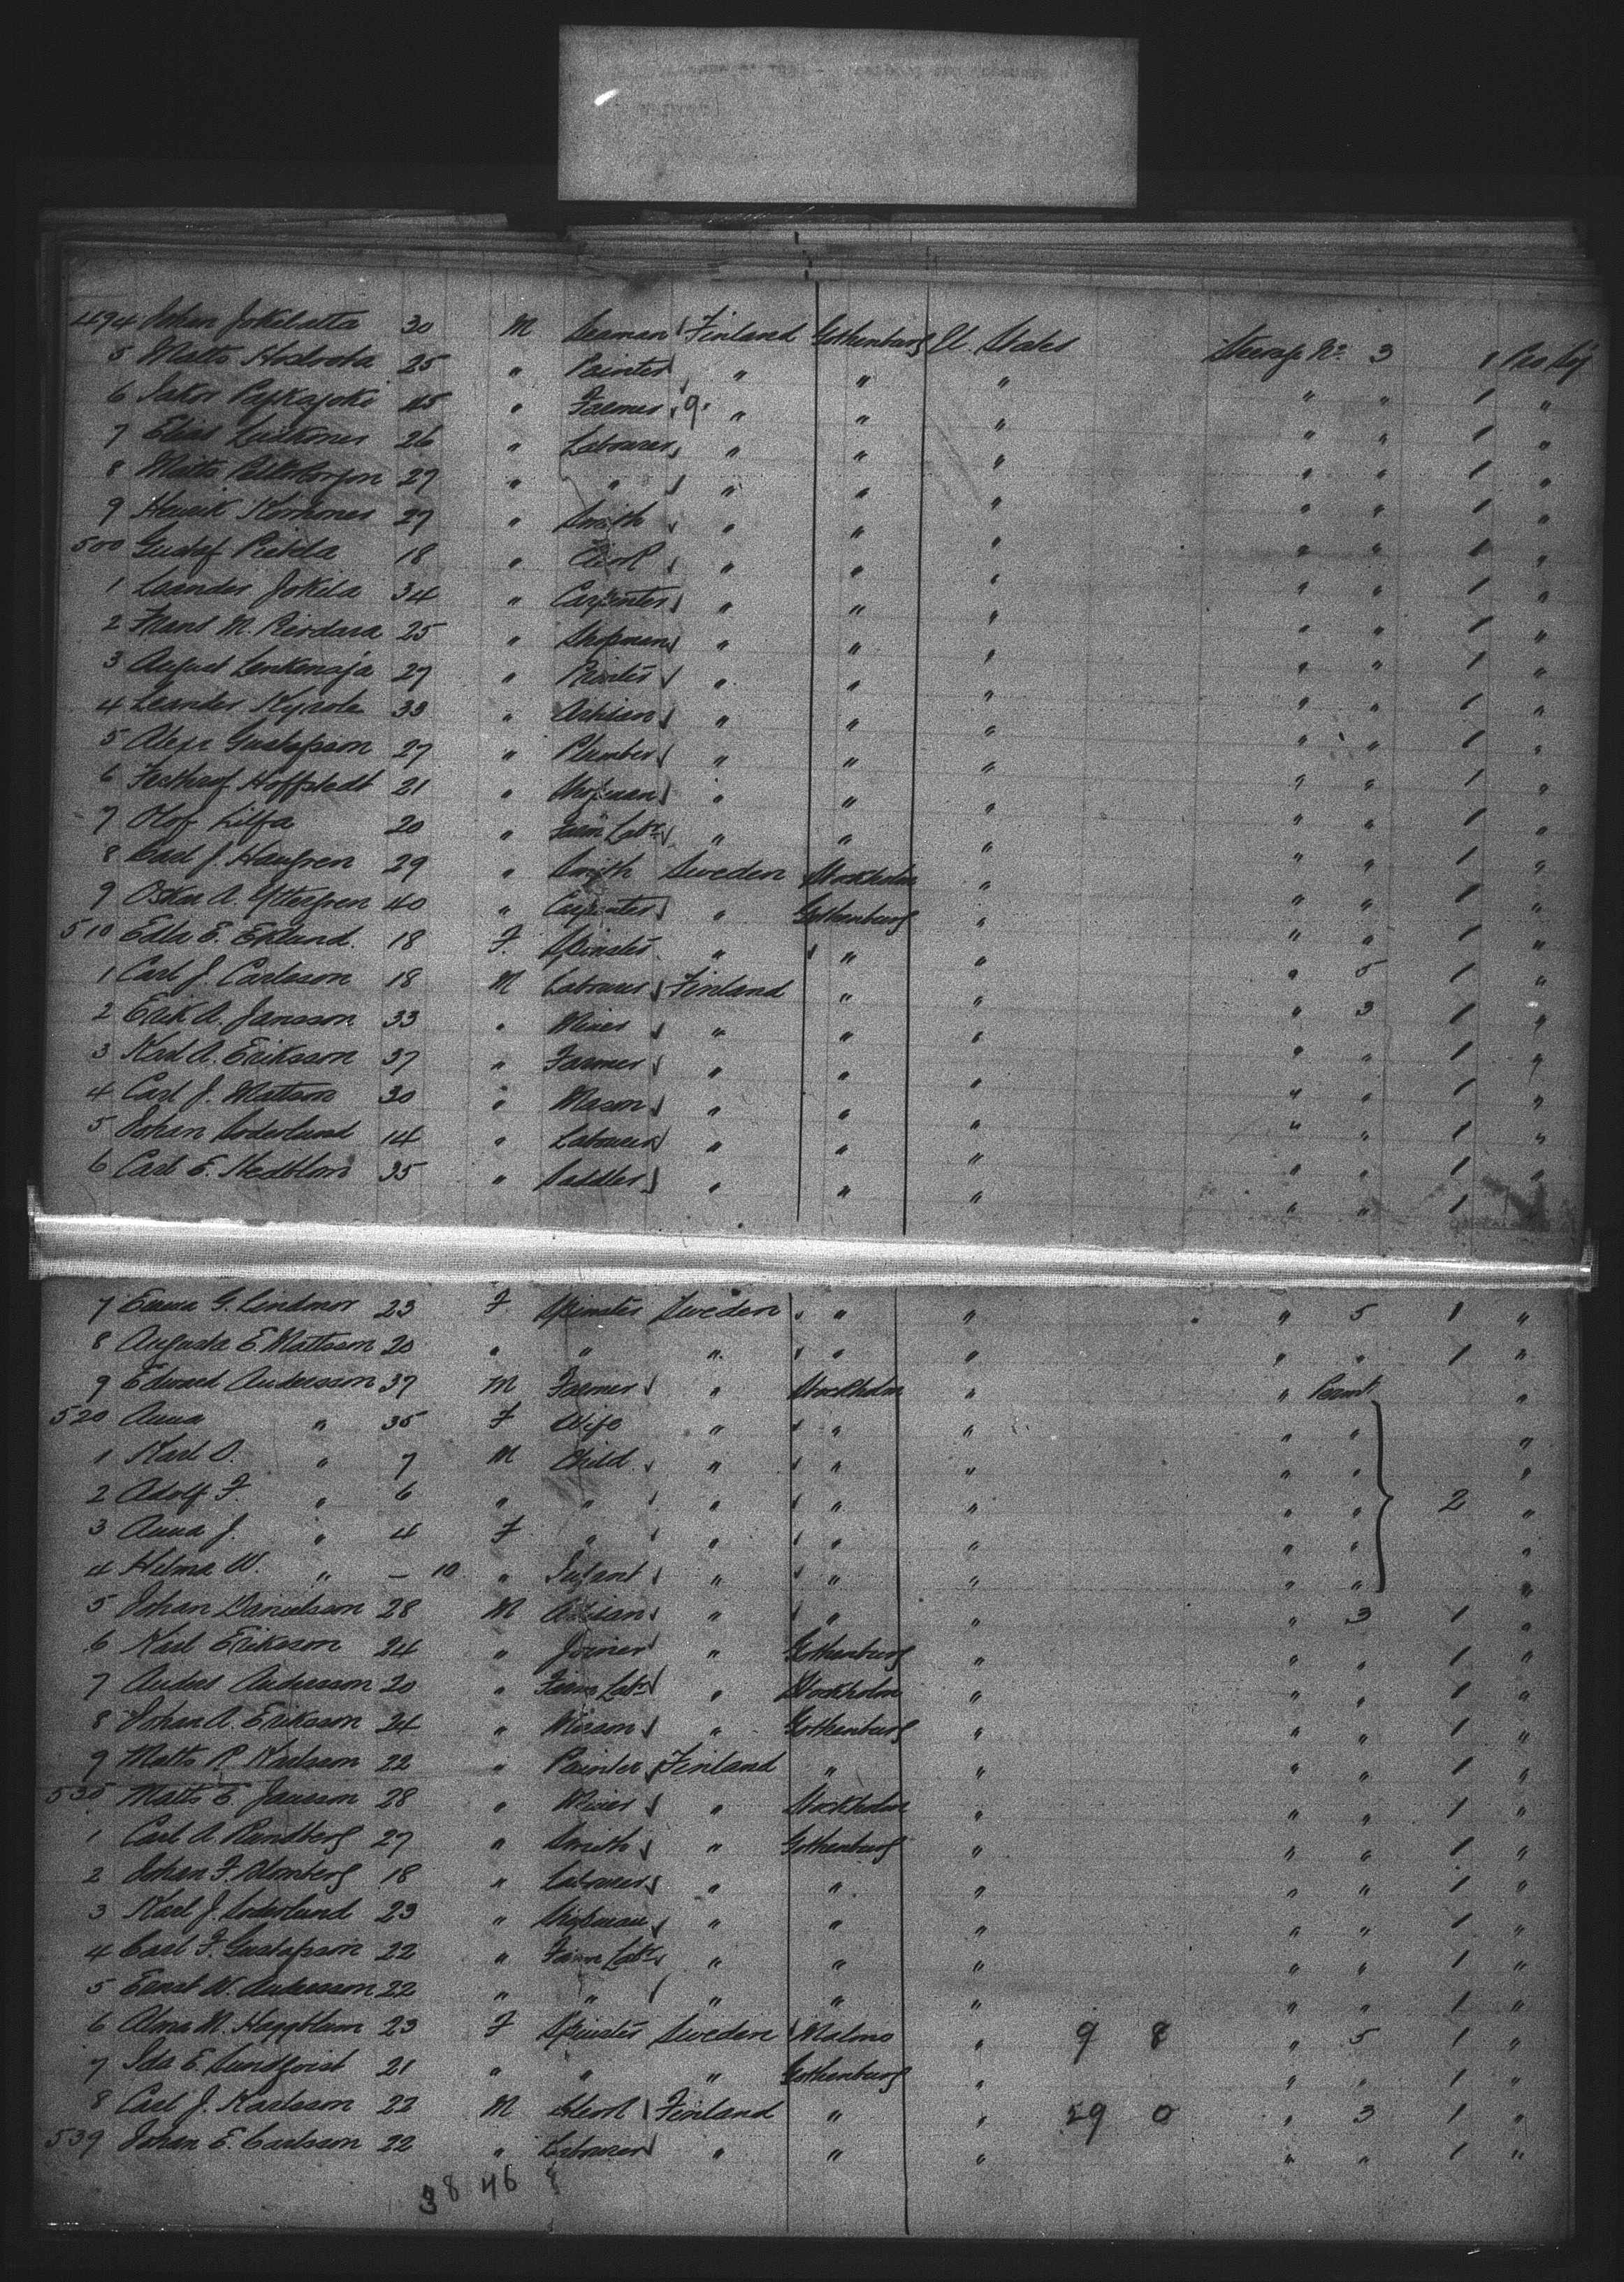 494 Johan Jokelatta 30 M Seaman Finland Gothenburg U. States Steerage No. 3 1 Pro Sej
5 Matts 25 " Painter " " " " " 1 "
6 Jakob Pejkajoki 45 " Farmer 9 " " " " " 1 "
7 Elias 26 " Labourer " " " " " 1 "
8 Matts 27 " " " " " " " 1 "
9 Henrik Korhones 27 " Smith " " " " " 1 "
500 Gustaf Pietila 18 " Clerk " " " " " 1 "
1 Leander Jokela 34 " Carpenter " " " " " 1 "
2 Frans M. 25 " Shopman " " " " " 1 "
3 August 27 " Printer " " " " " 1 "
4 Leander Kyrola 33 " Artisan " " " " " 1 "
5 Alexr Gustafsson 27 " Plumber " " " " " 1 "
6 Hoffstedt 21 " Shopman " " " " " 1 "
7 Olof Lilja 20 " Farm Labr " " " " " 1 "
8 Carl J. Haugren 29 " Smith Sweden Stockholm " " " 1 "
9 Oskar A. Yttergren 40 " Carpenter " Gothenburg " " " 1 "
510 Edla E. Eklund. 18 F. Spinster " " " " 5 1 "
1 Carl J. Carlsson 18 M Labourer Finland " " " 3 1 "
2 Erik A. Jansson 33 " Miner " " " " " 1 "
3 Karl A. Eriksson 37 " Farmer " " " " " 1 "
4 Carl J. Mattson 30 " Mason " " " " " 1 "
5 Johan Soderlund 14 " Labourer " " " " " 1 "
6 Carl E. Hedblom 35 " Saddler " " " " " 1
7 Emma G. Lindmor 23 F Spinster Sweden " " " 5 1 "
8 Augusta E. Mattsson 20 " " " " " " " 1 "
9 Edward Andersson 37 M Farmer " Stockholm " " "
520 Anna " 35 F Wife " " " " " "
1 Karl O. " 7 M Child " " " " " "
2 Adolf F. " 6 " " " " " " " 2 "
3 Anna J. " 4 F " " " " " " "
4 Helma W. " – 10 " Infant " " " " " "
5 Johan Danielsson 28 M Artisan " " " " 3 1 "
6 Karl Eriksson 24 " Joiner " Gothenburg " " " 1 "
7 Anders Andersson 20 " Farm Labr " Stockholm " " " 1 "
8 Johan A. Eriksson 24 " Mason " Gothenburg " " " 1 "
9 Matts P. Karlsson 22 " Painter Finland " " " " 1 "
530 Matts E. Jansson 28 " Miner " Stockholm " " " 1 "
1 Carl A. Rundberg 27 " Smith " Gothenburg " " " 1 "
2 Johan F. Blomberg 18 " Labourer " " " " " 1 "
3 Karl J. Soderlund 23 " Shopman " " " " " 1 "
4 Carl F. Gustafsson 22 " Farm Labr " " " " " 1 "
5 Ernst W. Andersson 22 " " " " " " " 1 "
6 Alma M. Haggblom 23 F Spinster Sweden Malmo " 9 8 " 5 1 "
7 Ida E. Lundqvist 21 " " " Gothenburg " " " 1 "
8 Carl J. Karlsson 22 M Clerk Finland " " 29 0 " 3 1 "
539 Johan E. Carlsson 22 " Labourer " " " " " 1 "
38 46 8